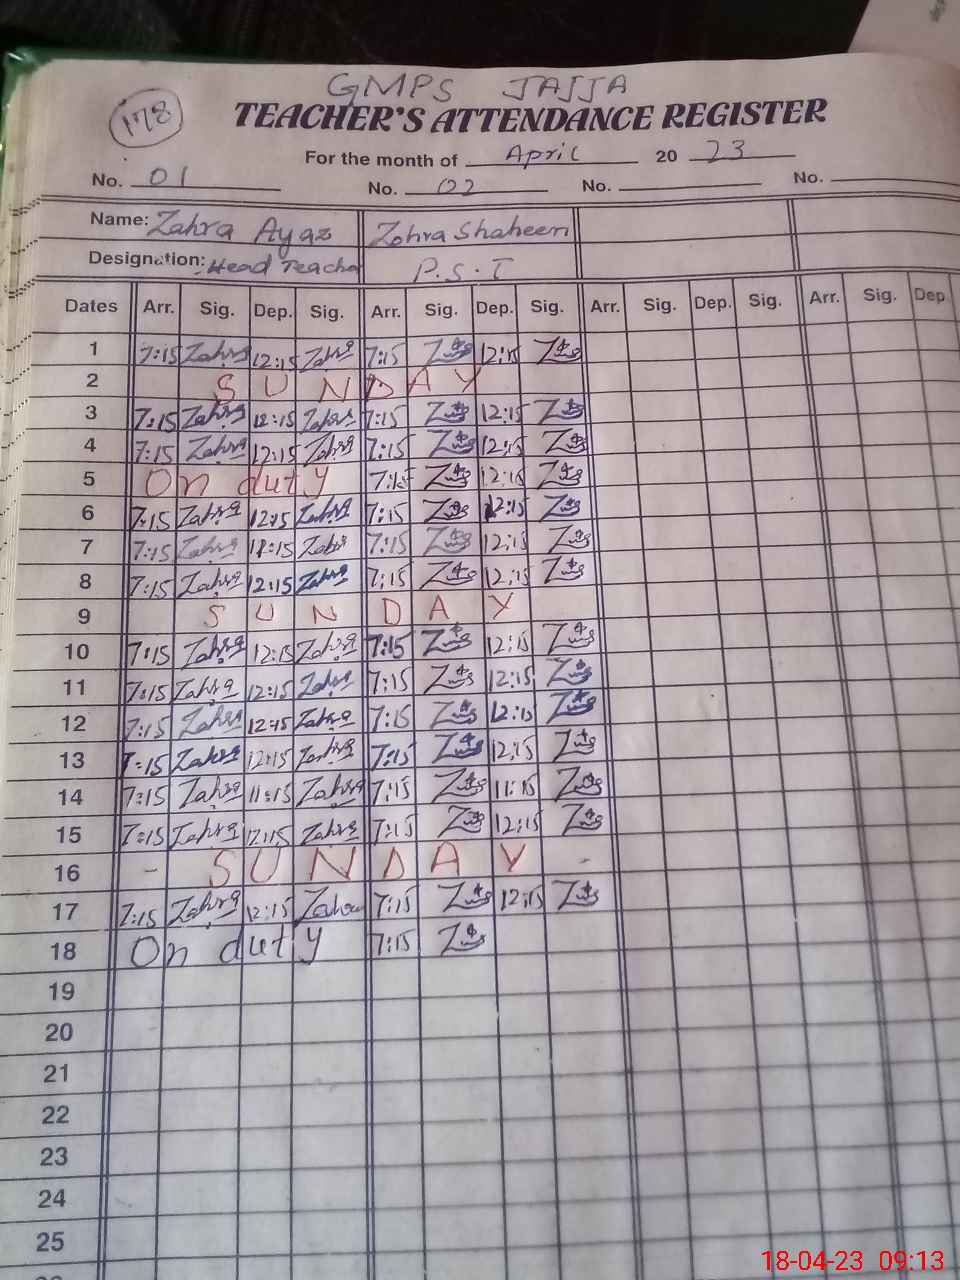 GMPS JAJJA
178
TEACHER'S ATTENDANCE REGISTER
For the month of April 20 23
No. 01 No. 02 No. No.
Name: Zahra Ayaz Zohra Shaheen
Designation: Head Teacher P.S.T
Dates Arr. Sig. Dep. Sig. Arr. Sig. Dep. Sig. Arr. Sig. Dep. Sig. Arr. Sig. Dep.
1 7:15 Zahra 12:15 Zahra 7:15 12:15
2 SUNDAY
3 7:15 Zahra 12:15 Zahra 7:15 12:15
4 7:15 Zahra 12:15 Zahra 7:15 12:15
5 On duty 7:15 12:15
6 7:15 Zahra 12:15 Zahra 7:15 12:15
7 7:15 Zahra 11:15 Zahra 7:15 12:15
8 7:15 Zahra 12:15 Zahra 7:15 12:15
9 SUNDAY
10 7:15 Zahra 12:15 Zahra 7:15 12:15
11 7:15 Zahra 12:15 Zahra 7:15 12:15
12 7:15 Zahra 12:15 Zahra 7:15 12:15
13 7:15 Zahra 12:15 Zahra 7:15 12:15
14 7:15 Zahra 11:15 Zahra 7:15 11:15
15 7:15 Zahra 12:15 Zahra 7:15 12:15
16 - SUNDAY -
17 7:15 Zahra 12:15 Zahra 7:15 12:15
18 On duty 7:15
19
20
21
22
23
24
25
18-04-23 09:13